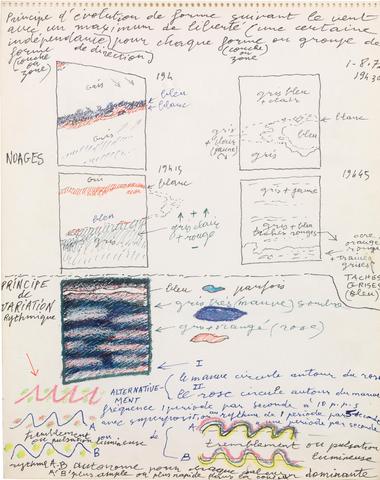 Principe d'évolution de forme suivant le vent
avec un maximum de liberté (une certaine
indépendance) pour chaque forme ou groupe de
forme de direction)
(couche
ou
zone)
(couche
ou
zone
1-8-7
19h
19h30
gris
bleu
blanc
gris
gris bleu
+ clair
blanc
bleu
gris
+ clair
(jaune)
gris
NUAGES
19h15
19h45
gris
blanc
bleu
gris
gris clair
+ rouge
gris + jaune
gris + bleu
taches rouges
ocre
orange
rouge
trainées
grises
TACHES
GRISES
(BLEU)
PRINCIPE
de
VARIATION
Rythmique
bleu parfois
gris très (mauve) sombre
gris orangé (rose)
I
le mauve circule autour du rose
ALTERNATIVE-
MENT
II
le rose circule autour du mauve
fréquence 1 période par seconde à
avec superposition du rythme de 1 période par 5 secondes
une période par seconde
A
B
tremblement
ou pulsation lumineuse
A
B
tremblement ou pulsation
lumineuse
rythme A-B autonome pour chaque
A+B plus ample ou plus rapide dans la couleur dominante